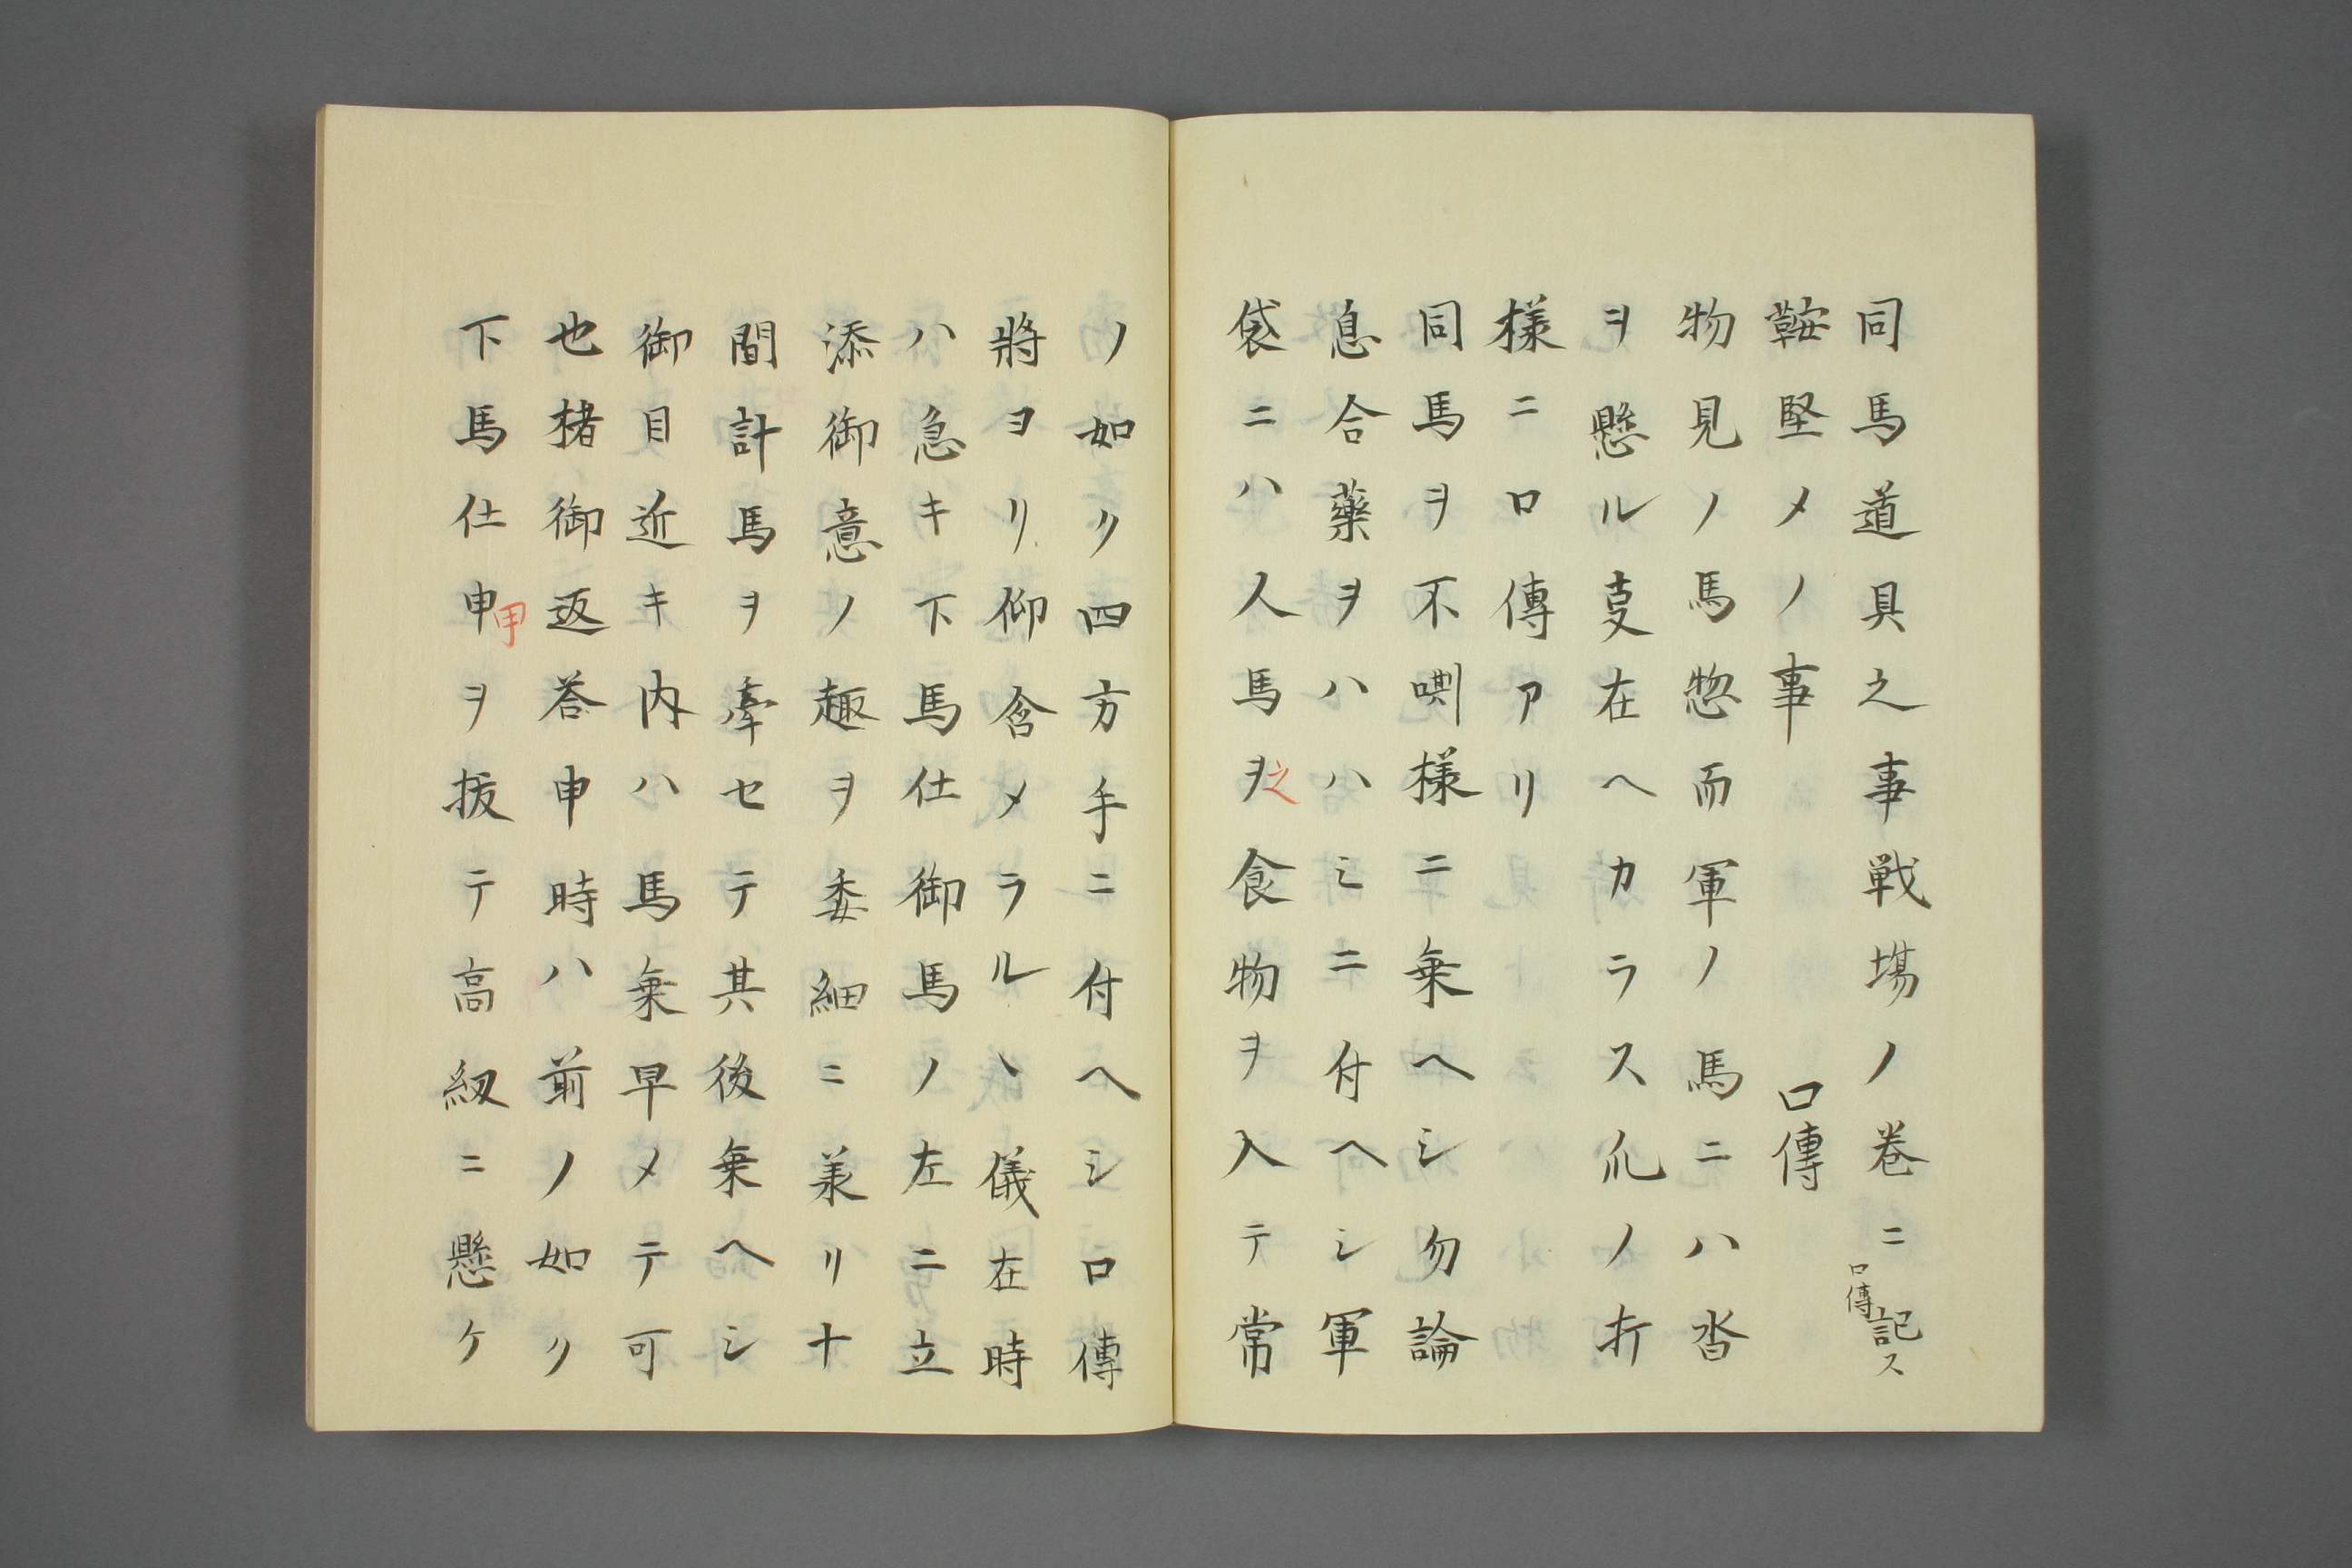 同馬道具之事戦場ノ巻ニ口傳記ス
鞍堅メノ事 口傳
物見ノ馬惣而軍ノ馬ニハ沓
ヲ懸ル叓在ヘカラス爪ノ折
様ニ口傳アリ
同馬ヲ不嘶様ニ乗ヘシ勿論
息合藥ヲハハミニ付ヘシ軍
袋ニハ人馬ヲ之食物ヲ入テ常
ノ如ク四方手ニ付ヘシ口傳
將ヨリ仰含メラルヽ儀在時
ハ急キ下馬仕御馬ノ左ニ立
添御意ノ趣ヲ委細ニ羕リ十
間計馬ヲ牽セテ其後乗ヘシ
御目近キ内ハ馬乗早メテ可
也楮御返荅申時ハ前ノ如ク
下馬仕申甲ヲ拔テ高紐ニ懸ケ